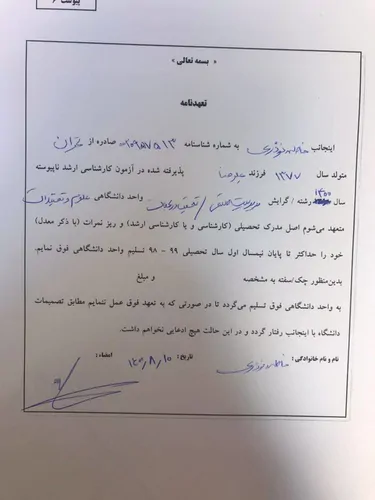 پیوست ۶
« بسمه تعالی »
تعهدنامه
اینجانب به شماره شناسنامه صادره از تهران
متولد سال ۱۳۷۷ فرزند علیرضا پذیرفته شده در آزمون کارشناسی ارشد ناپیوسته
سال ۱۴۰۰ رشته / گرایش مدیریت صنعتی / واحد دانشگاهی علوم و تحقیقات
متعهد می‌شوم اصل مدرک تحصیلی (کارشناسی و یا کارشناسی ارشد) و ریز نمرات (با ذکر معدل)
خود را حداکثر تا پایان نیمسال اول سال تحصیلی ۹۹ – ۹۸ تسلیم واحد دانشگاهی فوق نمایم.
بدین‌منظور چک/سفته به مشخصه و مبلغ
به واحد دانشگاهی فوق تسلیم می‌گردد تا در صورتی که به تعهد فوق عمل ننمایم مطابق تصمیمات
دانشگاه با اینجانب رفتار گردد و در این حالت هیچ ادعایی نخواهم داشت.
نام و نام خانوادگی : تاریخ: امضاء :